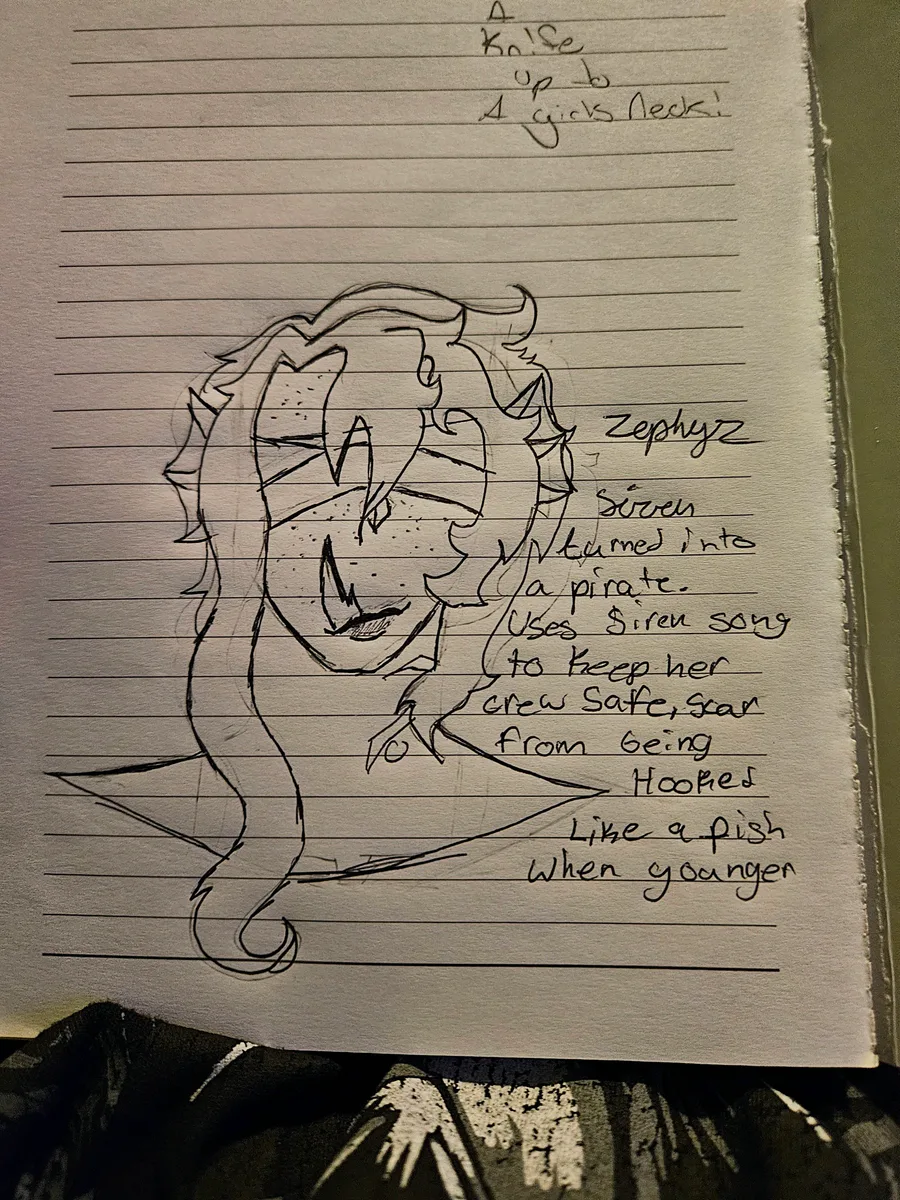 A
Knife
up to
A girls Neck!
Zephyz
Siren
turned into
a pirate.
Uses Siren song
to keep her
crew Safe, Scar
from being
Hooked
Like a pish
when younger